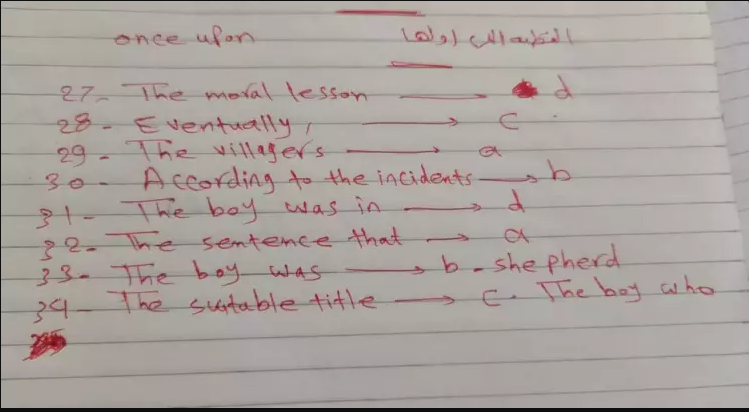 once upon القطعه التى اولها
27- The moral lesson → d
28- Eventually, → c
29- The villagers → a
30- According to the incidents → b
31- The boy was in → d
32- The sentence that → a
33- The boy was → b - shepherd
34- The suitable title → c. The boy who